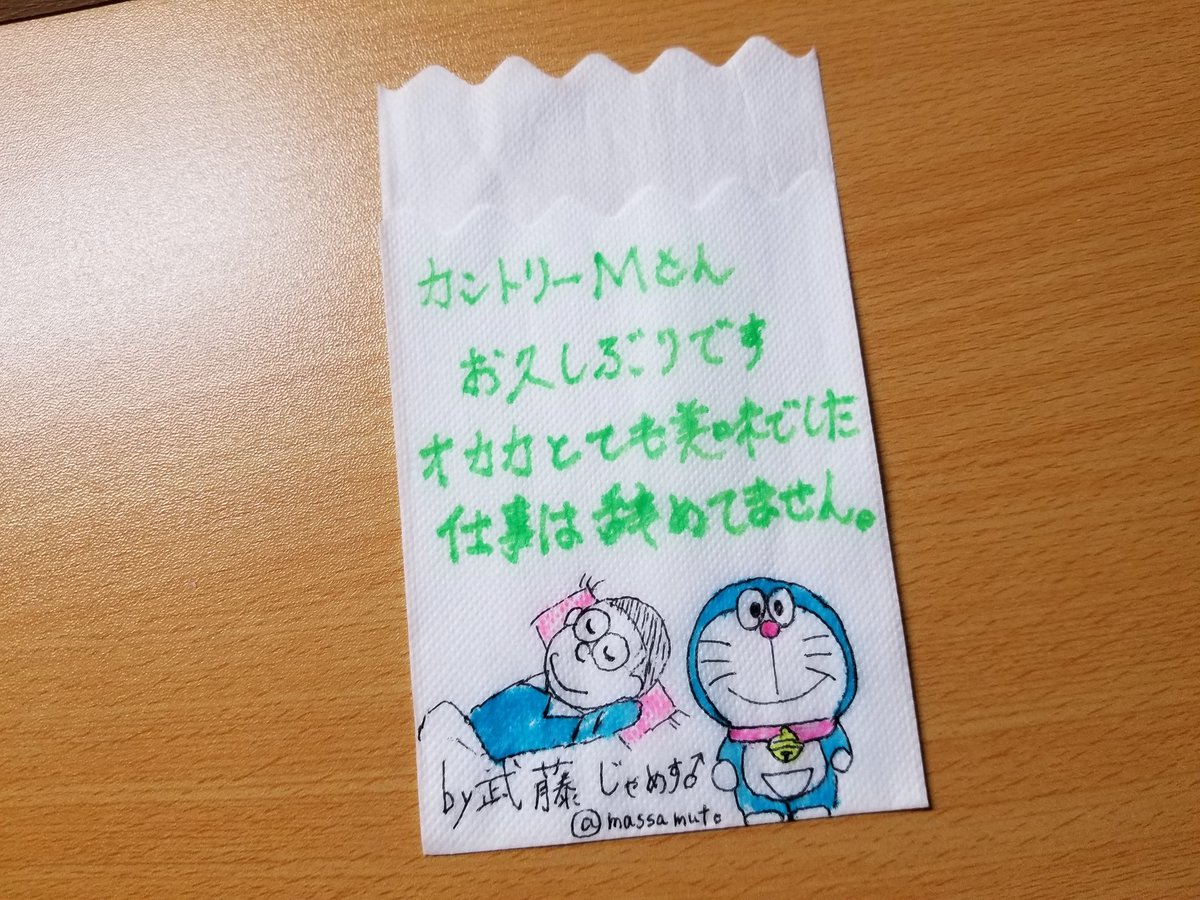 カントリーMさん
お久しぶりです
オカカとても美味でした
仕事は辞めてません。
by武藤 じゃめす♂
@massamuto